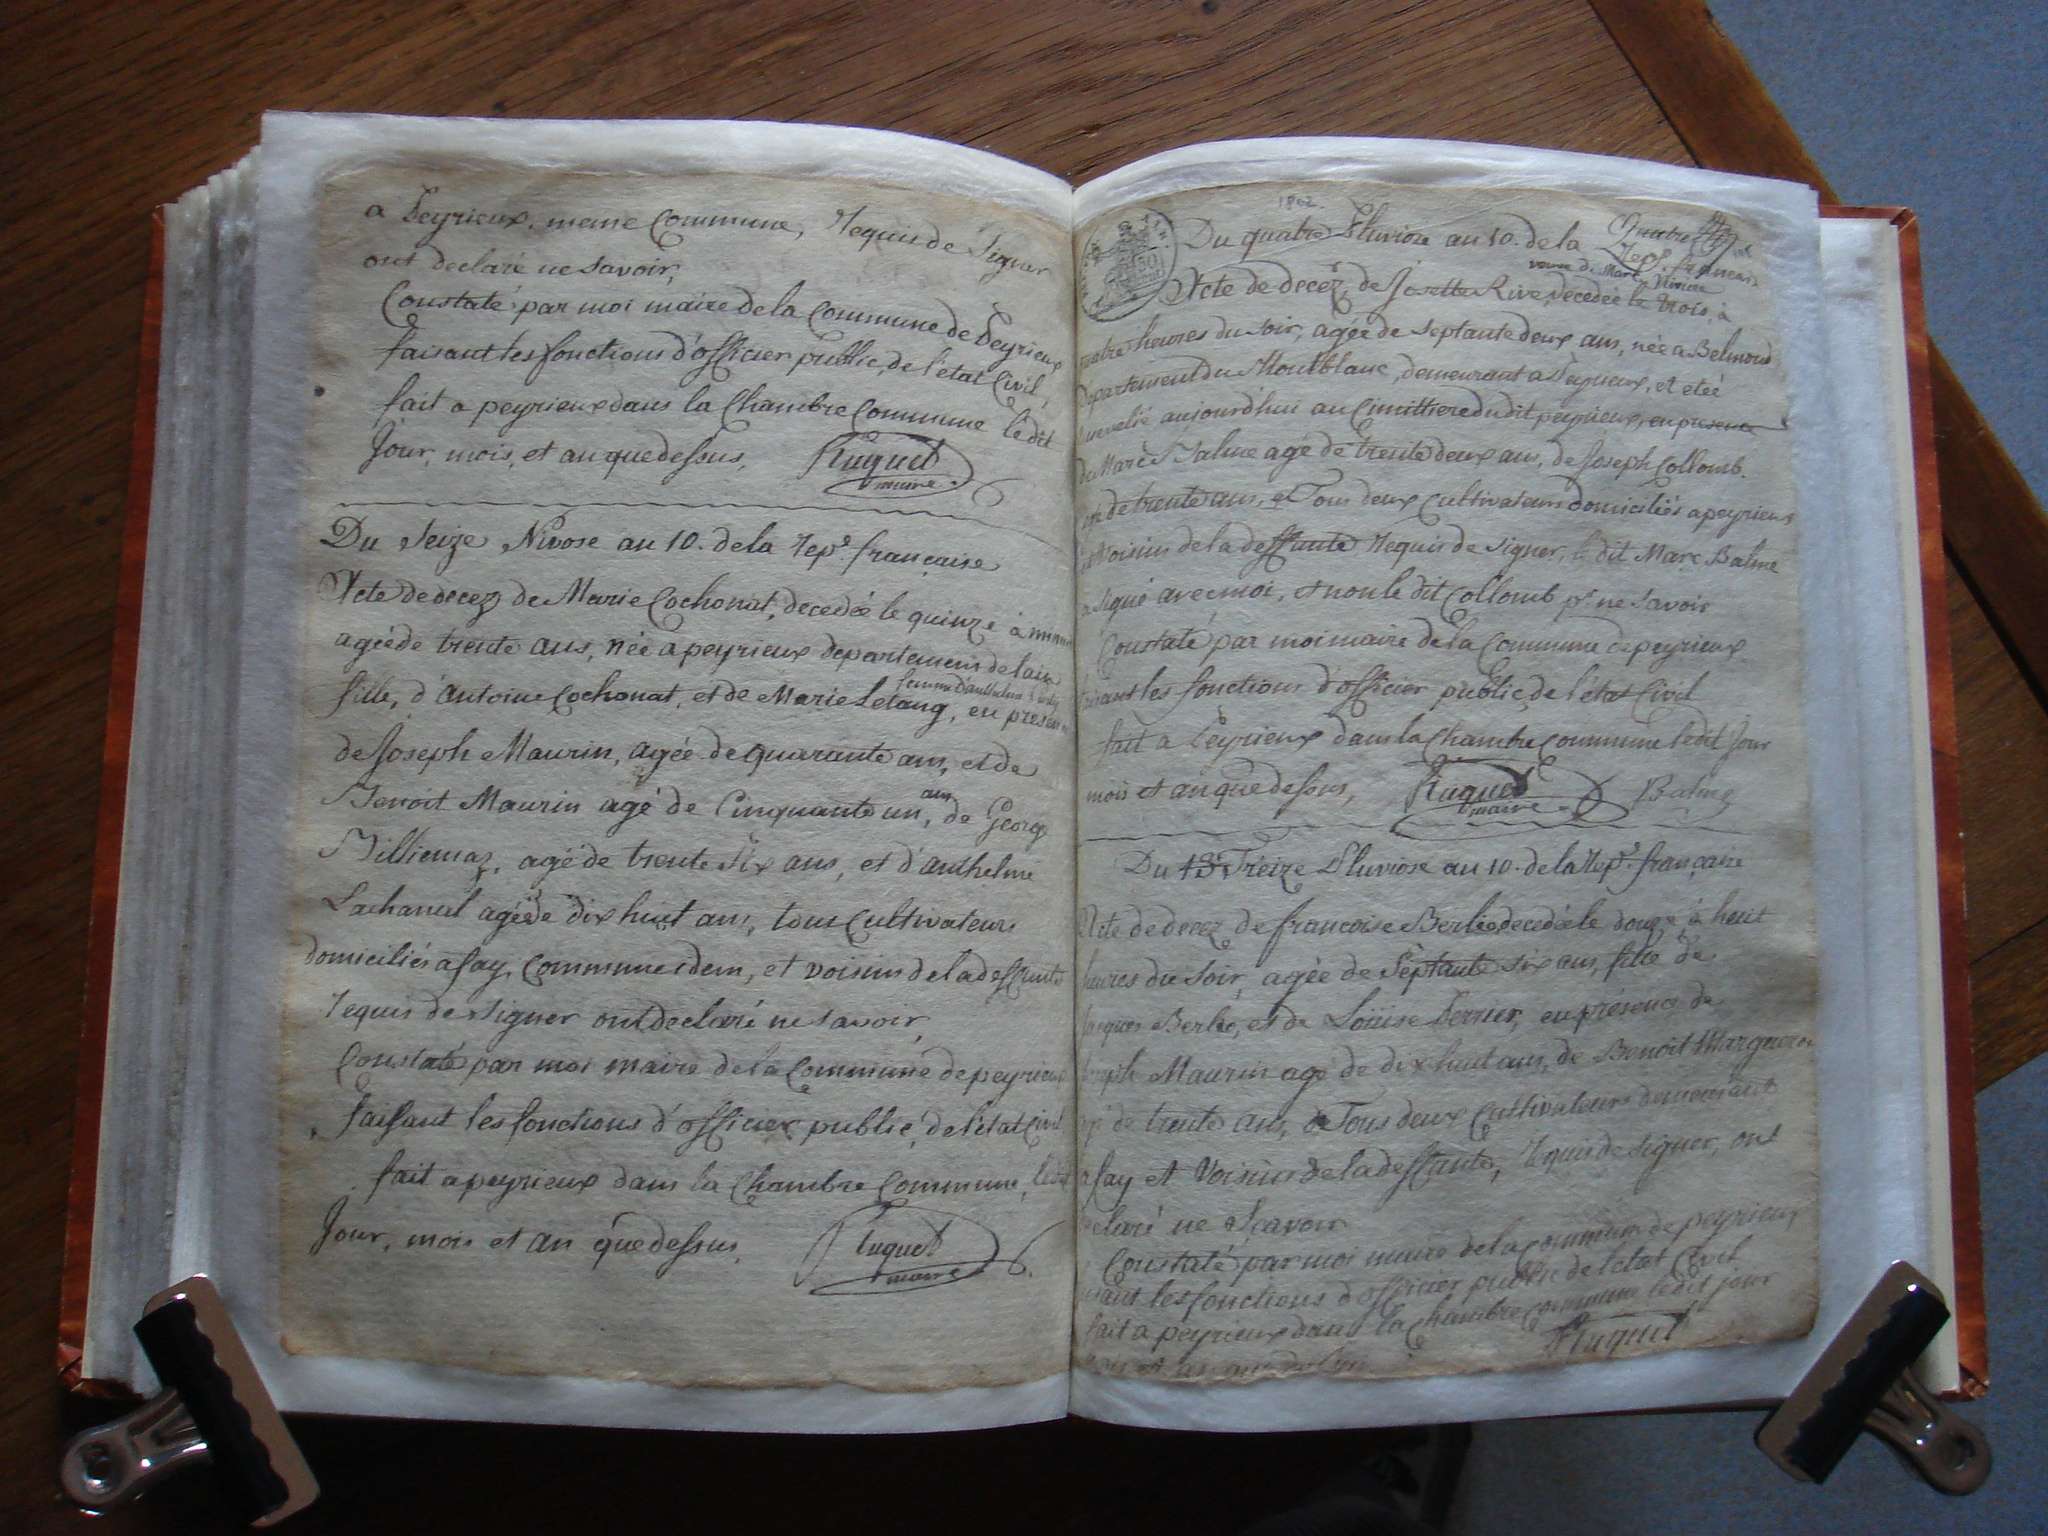 a Peyrieux, meme Commune, Requis de Signer
ont declaré ne savoir,
Constaté par moi maire de la Commune de Peyrieux
faisant les fonctions d'officier public, de l'etat Civil,
fait a peyrieux dans la Chambre Commune ledit
Jour, mois, et an que dessus, Ruquet
maire
Du Seize Nivose an 10. de la Rep.e française
Acte de decez de Marie Cochonat, decedée le quinze à
agée de trente ans, née a peyrieux departement de lain
fille, d'antoine Cochonat, et de Marie Letang, en presence
de Joseph Maurin, agée de quarante ans, et de
Benoit Maurin agé de Cinquante un ans, de George
Billiemaz, agé de trente Six ans, et d'anthelme
Lachanal agée de dix huit ans, tous Cultivateurs
domiciliés a fay, Commune idem, et voisins de la deffunte
Requis de signer ont declaré ne savoir,
Constaté par moi maire de la Commune de peyrieux
faisant les fonctions d'officier public, de l'etat Civil
fait a peyrieux dans la Chambre Commune, ledit
Jour, mois et an que dessus, Ruquet
maire
1802
Du quatre Pluviose an 10. de la Rep.e francaise
veuve de Marc
Acte de decez, de Josette Rive, decedée le trois, à
quatre heures du soir, agée de Septante deux ans, née a Belmond
Departement du Montblanc, demeurant a Peyrieux, et etéé
ensevelie aujourd'hui au Cimittiere dudit peyrieux, en presence
de Marc Balme agé de trente deux ans, de Joseph Collomb.
agé de trente ans, et Tous deux Cultivateurs domiciliés a peyrieux
et Voisins de la deffunte Requis de signer, le dit Marc Balme
a signé avec moi, et non le dit Collomb pr. ne savoir
Constaté par moi maire de la Commune de peyrieux
faisant les fonctions d'officier public, de l'etat Civil
fait a Peyrieux dans la Chambre Commune ledit Jour
mois et an que dessus, Ruquet Balme
maire
Du 13 Treize Pluviose an 10. de la Rep.e française
Acte de decez de francoise Berlio decedée le douze, à huit
heures du Soir, agée de Septante six ans, fille de
Jacques Berlio, et de Loüise Perrier, en présence de
Joseph Maurin agé de dix huit ans, de Benoit Margueron
agé de trente ans, Tous deux Cultivateurs demeurant
a fay et Voisins de la deffunte, Requis de signer, ont
declaré ne Scavoir
Constaté par moi maire de la Commune de peyrieux
faisant les fonctions d'officier public de l'etat Civil
fait a peyrieux dans la Chambre Commune ledit jour
mois et an que dessus Ruquet